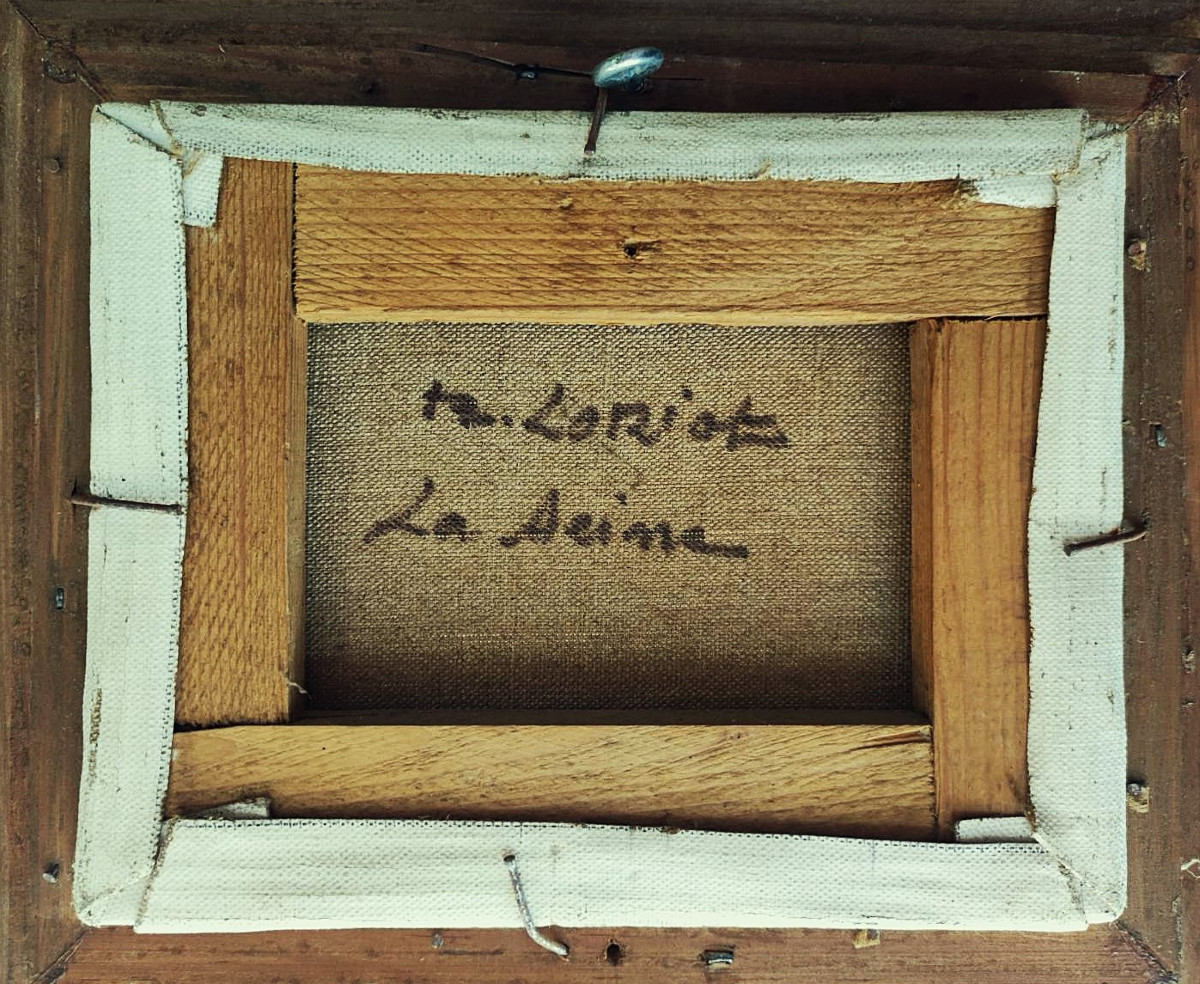 M. LORiot
La Seine